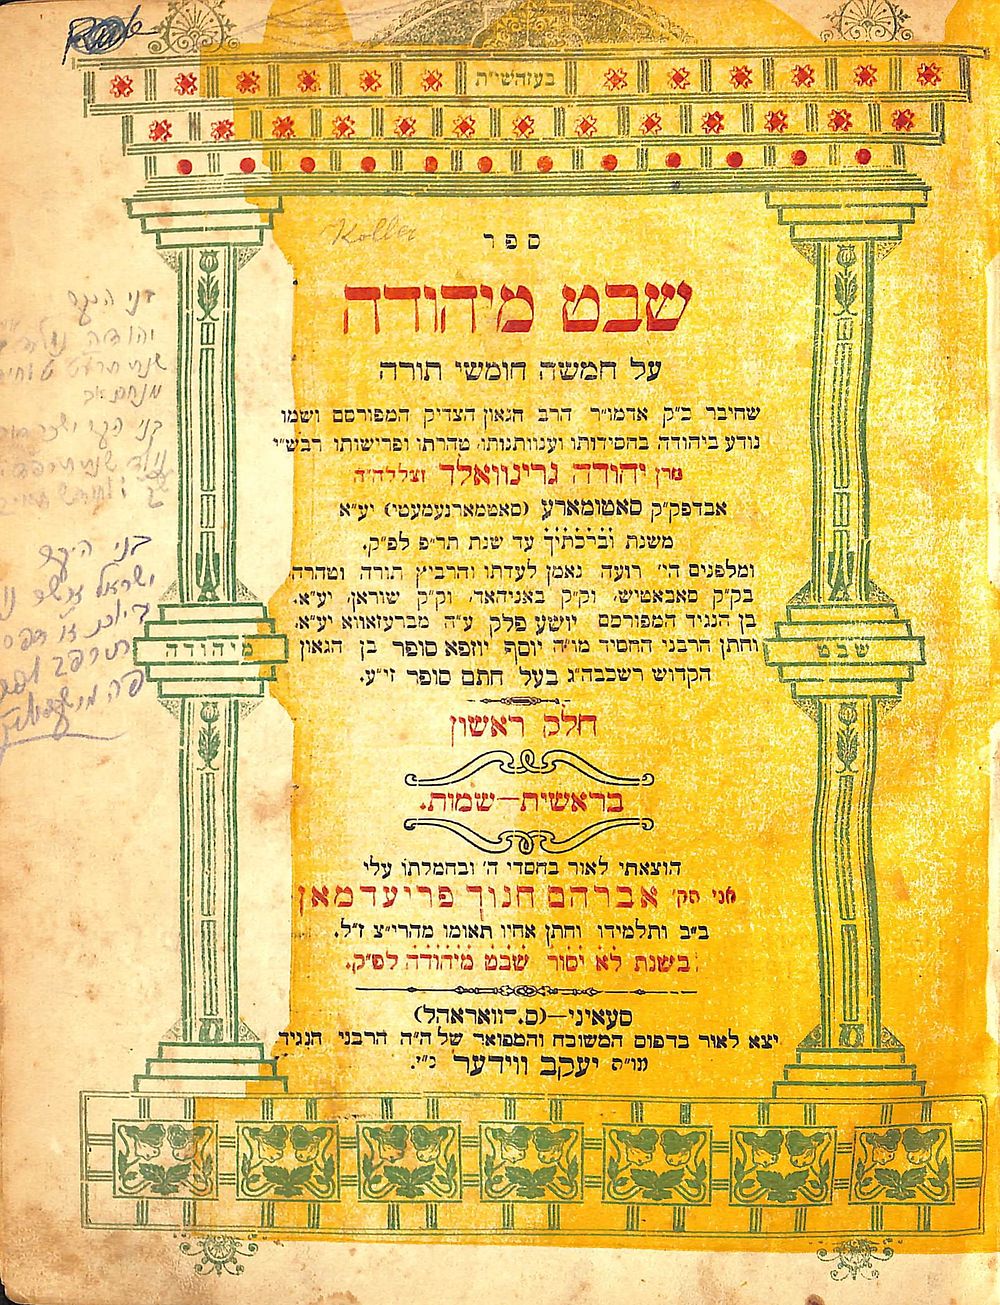 בעזהשי״ת
Koller
ספר
שבט מיהודה
על חמשה חומשי תורה
שחיבר כ״ק אדמו״ר הרב הגאון הצדיק המפורסם ושמו
נודע ביהודה בחסידותו וענוותנותו, טהרתו ופרישותו רבש״י
מרן יהודה גרינוואלד זצללה״ה
אבדפק״ק סאטומארע (סאטמארנעמעטי) יע״א
משנת וברכתיך עד שנת תר״פ לפ״ק.
ומלפנים הי׳ רועה נאמן לעדתו והרביץ תורה וטהרה
בק״ק סאבאטיש, וק״ק באניהאד, וק״ק שוראן, יע״א.
בן הנגיד המפורסם יושע פלק ע״ה מברעזאווא יע״א,
וחתן הרבני החסיד מו״ה יוסף יוזפא סופר בן הגאון
הקדוש רשכבה״ג בעל חתם סופר זי״ע.
שבט
מיהודה
חלק ראשון
בראשית—שמות.
הוצאתי לאור בחסדי ה׳ ובחמלתו עלי
אני הק׳ אברהם חנוך פריעדמאן
ב״ב ותלמידו וחתן אחיו תאומו מהרי״צ ז״ל.
בשנת לא יסור שבט מיהודה לפ״ק.
סעאיני—(ס.-וואראהל)
יצא לאור בדפוס המשובח והמפואר של ה״ה הרבני הנגיד
מו״ה יעקב ווידער נ״י.
בני היקר
יהודה נולד
שנת
מנחם אב
בני היקר
נולד שנת
בני היקר
ישראל